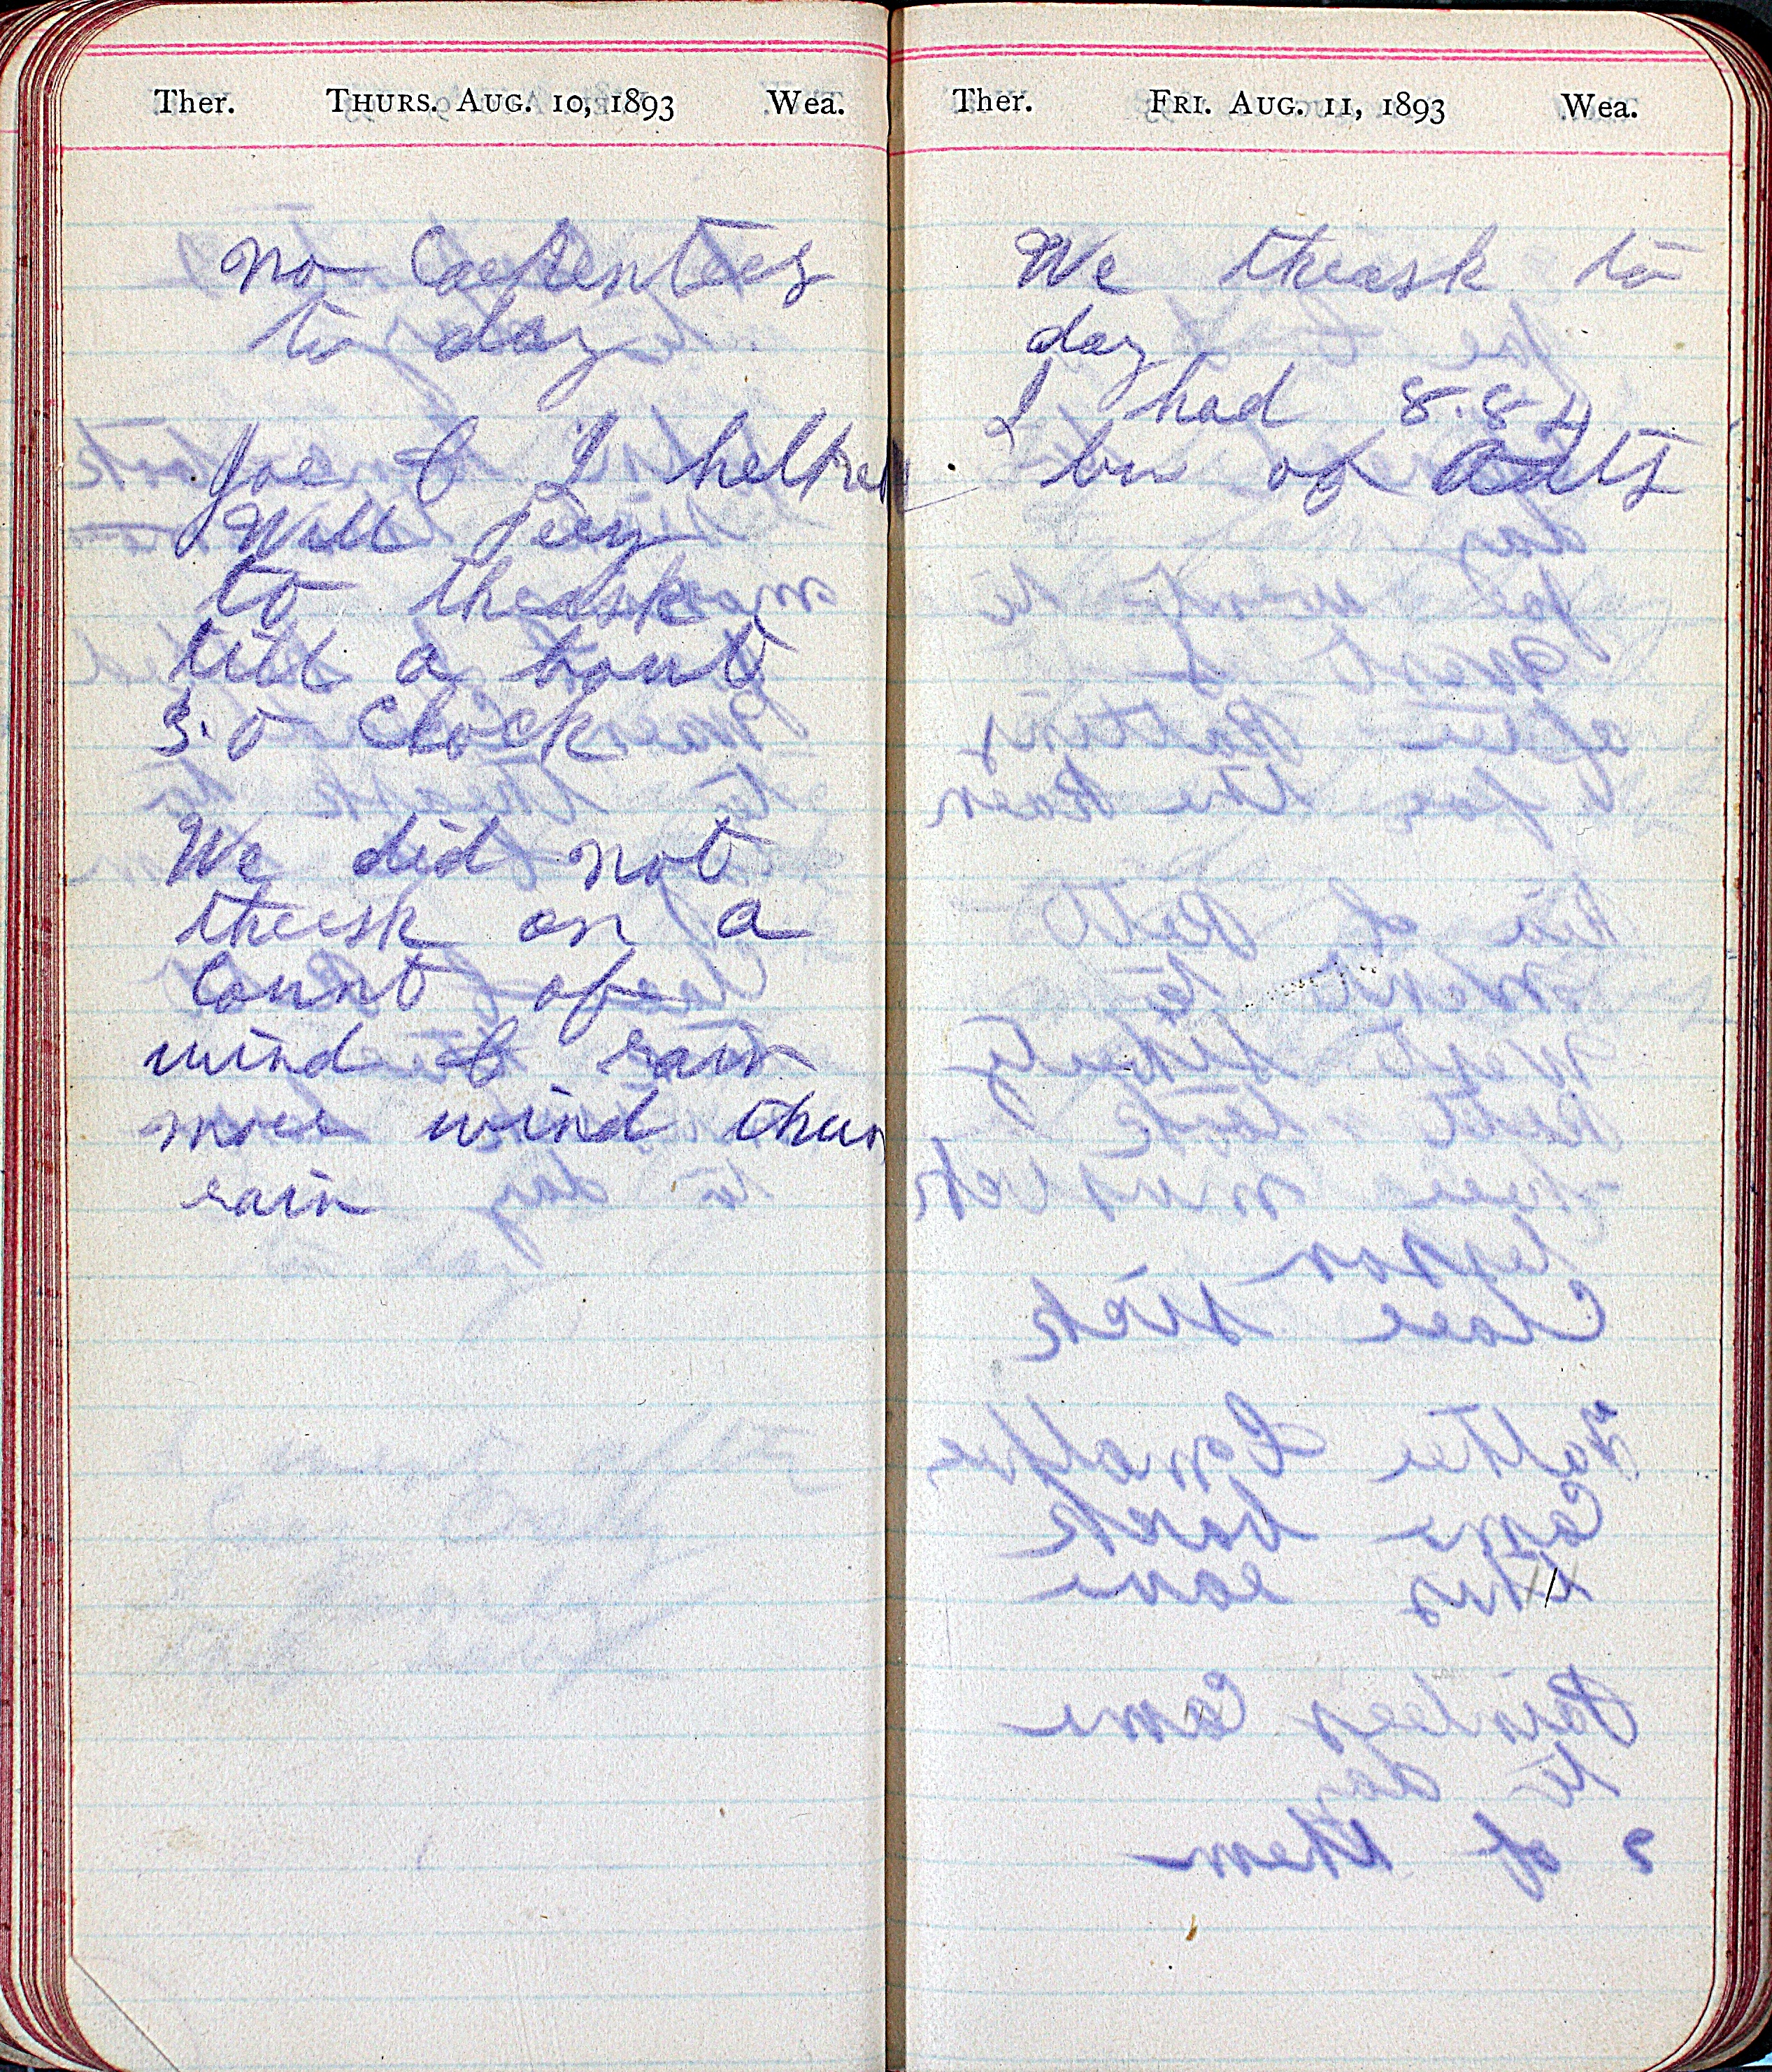 Ther. THURS. AUG. 10, 1893 Wea.
no Carpenters
to day
Joe & I helped
Will
to thrash
till a bout
3. o Clock
We did not
thresh on a
Count of
wind & rain
more wind than
rain
Ther. FRI. AUG. 11, 1893 Wea.
We thrash to
day
I had 882
bu of oats